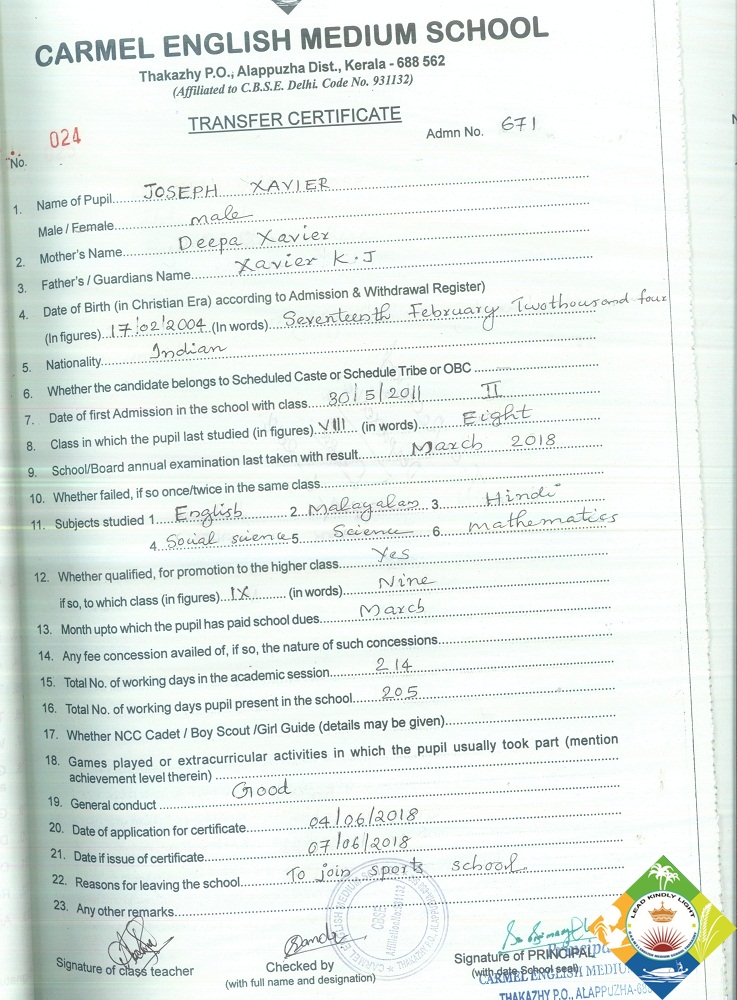 CARMEL ENGLISH MEDIUM SCHOOL
Thakazhy P.O., Alappuzha Dist., Kerala - 688 562
(Affiliated to C.B.S.E. Delhi. Code No. 931132)
TRANSFER CERTIFICATE
No. 024
Admn No. 671
1. Name of Pupil JOSEPH XAVIER
Male / Female male
2. Mother's Name Deepa Xavier
3. Father's / Guardians Name Xavier K.J
4. Date of Birth (in Christian Era) according to Admission & Withdrawal Register)
(In figures) 17/02/2004 (In words) Seventeenth February Twothousand four
5. Nationality Indian
6. Whether the candidate belongs to Scheduled Caste or Schedule Tribe or OBC
7. Date of first Admission in the school with class 30/5/2011 II
8. Class in which the pupil last studied (in figures) VIII (in words) Eight
9. School/Board annual examination last taken with result March 2018
10. Whether failed, if so once/twice in the same class
11. Subjects studied 1. English 2. Malayalam 3. Hindi
4. Social science 5. Science 6. mathematics
12. Whether qualified, for promotion to the higher class Yes
if so, to which class (in figures) IX (in words) Nine
13. Month upto which the pupil has paid school dues March
14. Any fee concession availed of, if so, the nature of such concessions
15. Total No. of working days in the academic session 214
16. Total No. of working days pupil present in the school 205
17. Whether NCC Cadet / Boy Scout /Girl Guide (details may be given)
18. Games played or extracurricular activities in which the pupil usually took part (mention
achievement level therein)
19. General conduct Good
20. Date of application for certificate 04/06/2018
21. Date if issue of certificate 07/06/2018
22. Reasons for leaving the school To join sports school
23. Any other remarks
Signature of class teacher
Checked by
(with full name and designation)
Signature of PRINCIPAL
(with date School seal)
Principal
CARMEL ENGLISH MEDIU
THAKAZHY P.O., ALAPPUZHA-68
LEAD KINDLY LIGHT